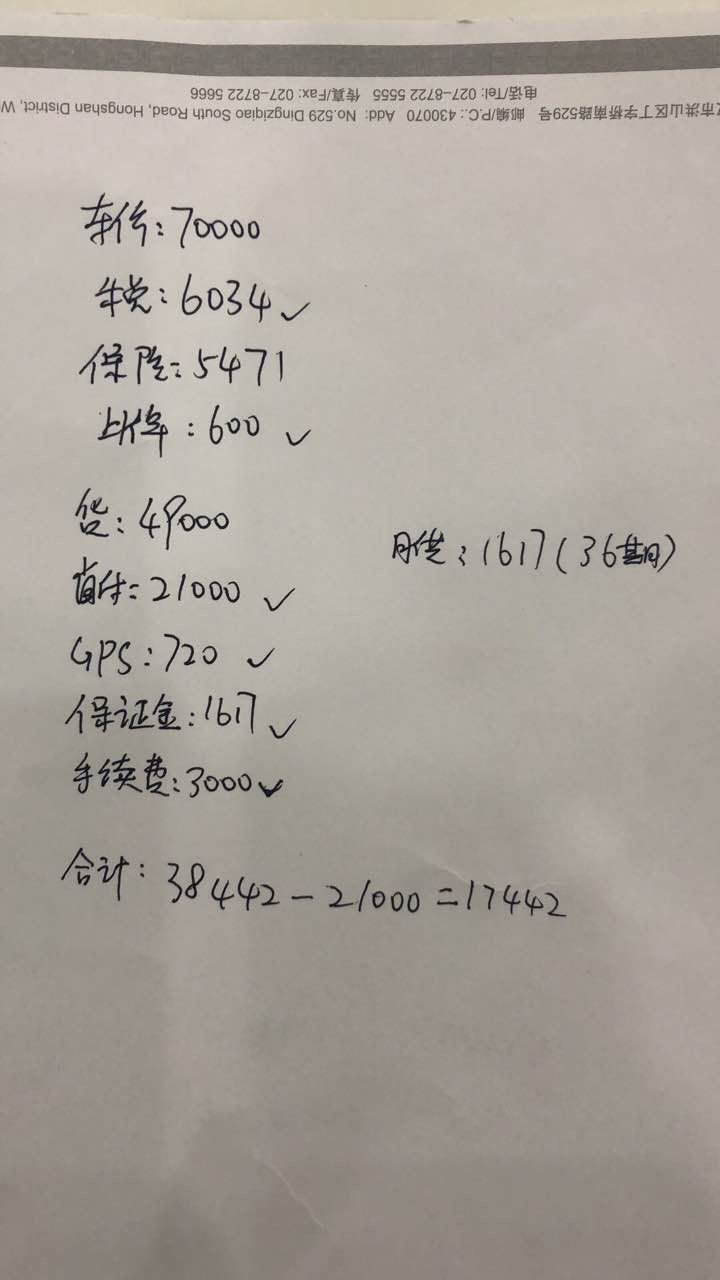 电话/Tel: 027-8722 5555 传真/Fax: 027-8722 5666
市洪山区丁字桥南路529号 邮编/P.C.: 430070 Add: No.529 Dingziqiao South Road, Hongshan District, W
车价: 70000
车税: 6034 ✓
保险: 5471
上牌: 600 ✓
贷: 49000
月供: 1617(36期)
首付: 21000 ✓
GPS: 720 ✓
保证金: 1617 ✓
手续费: 3000 ✓
合计: 38442-21000=17442